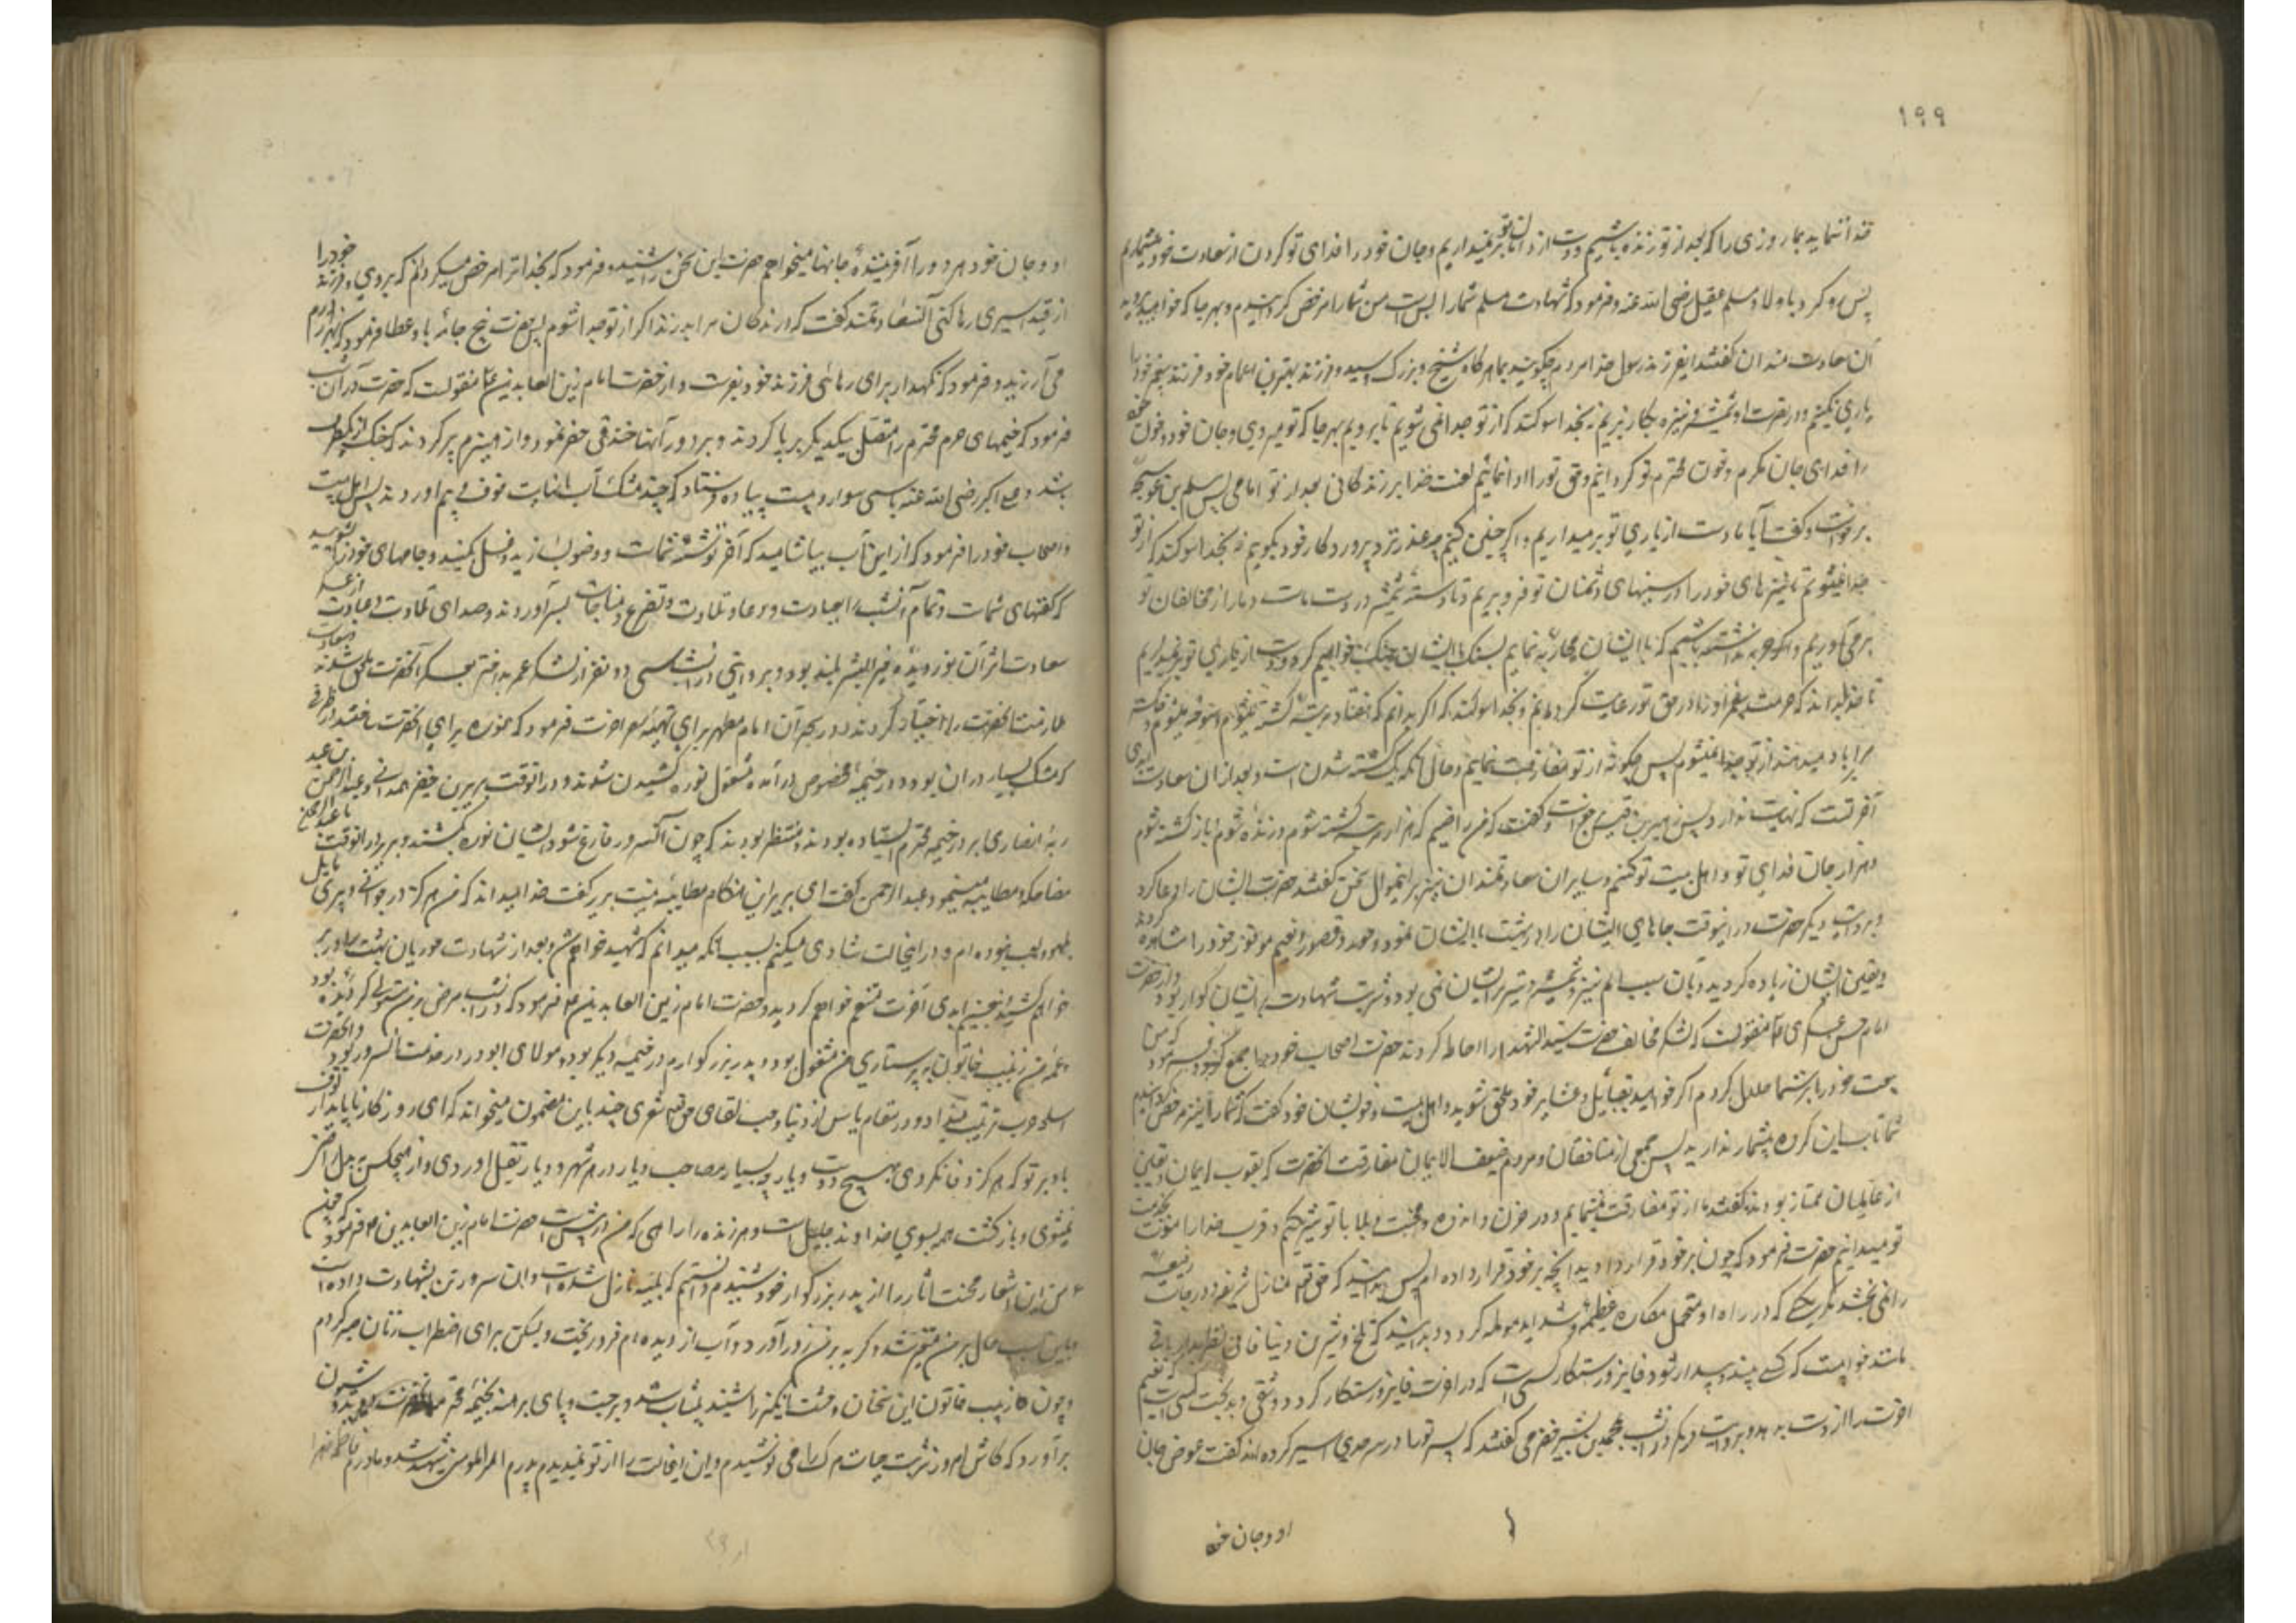 ۱۹۹
خدا ننماید بما روزی را که بعد از تو زنده باشیم دست از دامان تو بر نمیداریم و جان خود را فدای تو کردن از سعادت خود میشماریم
پس رو کرد باولاد مسلم عقیل رضی الله عنه و فرمود که شهادت مسلم شما را بس است من شما را مرخص کردانیدم و بهر جا که خواهید بروید
آن سعادت مندان گفتند ایفرزند رسول خدا مردم چگویند بما هرگاه شیخ و بزرگ و سید و فرزند بهترین اعمام خود فرزند پیغمبر خود را
یاری نکنیم و در نصرت او شمشیر و نیزه بکار نبریم نه بخدا سوکند که از تو جدا نمی شویم تا برویم بهر جا که تو میروی و جان خود و خون خود
را فدای جان مکرم و خون محترم تو کردانیم و حق تو را ادا نمائیم لعنت خدا بر زندکانی بعد از تو امامی پس مسلم بن عوسجه
برخواست و گفت آیا ما دست از یاری تو بر میداریم و اگر چنین کنیم چه عذر نزد پرورد کار خود بگوییم نه بخدا سوکند که از تو
جدا نمیشویم تا نیزه های خود را در سینهای دشمنان تو فرو بریم و تا دسته شمشیر در دست ماست دمار از مخالفان تو
بر می آوریم و اگر حربه نداشته باشیم که با ایشان محاربه نمایم بسنگ با ایشان جنگ خواهیم کرد و دست از یاری تو بر نمیداریم
تا خدا بداند که حرمت پیغمبر او را در حق تو رعایت کرده ایم و بخدا سوکند که اگر بدانم که هفتاد مرتبه کشته میشوم و سوخته میشوم و خاکستر
مرا بباد میدهند از تو جدا نمیشوم پس چگونه از تو مفارقت نمایم و حال آنکه یک کشته شدن است و بعد از آن سعادت ابدی
آخرتست که نهایت ندارد پس زهیر بن قیس برخواست و گفت که من راضیم که هزار مرتبه کشته شوم و زنده شوم و باز کشته شوم
و هزار جان فدای تو و اهل بیت تو کنم و سایر آن سعادتمندان نیز بر اینموال سخن گفتند حضرت ایشان را دعا کرد
و بروایت دیگر حضرت در اینوقت جاهای ایشان را در بهشت با ایشان نمود و حور و قصور و نعیم موفور خود را مشاهده کردند
و یقین ایشان زیاده کردید و بآن سبب الم نیزه و شمشیر و تیر بر ایشان نمی بود و شربت شهادت بر ایشان کوارا بود و از حضرت
امام حسن عسکری ع منقولست که لشکر مخالف حضرت سید الشهدا را احاطه کردند حضرت اصحاب خود را جمع نمود و فرمود که من
بیعت خود را بر شما حلال کردم اگر خواهید بقبایل و عشایر خود ملحق شوید و اهل بیت و خویشان خود گفت که شما را نیز مرخص کردانیدم
شما تاب این کروه بیشمار ندارید پس جمعی از منافقان و مردم ضعیف الایمان مفارقت آنحضرت که بقوت ایمان و یقین
از عالمیان ممتاز بودند گفتند ما از تو مفارقت نمینمایم و در حزن و اندوه و محنت و بلا با تو شریکیم و قرب خدا را منوط بخدمت
تو میدانیم حضرت فرمود که چون بر خود قرار دادید آنچه بر خود قرار داده ام پس بدانید که حق تعالی منازل شریفه و درجات رفیعه
را نمی بخشد مگر بکسی که در راه او متحمل مکاره عظیمه و شداید مولمه کردد و بدانید که تلخ و شیرین دنیا فانی نظر بدار باقی
مانند خوابیست که کسی بیند و بیدار شود فایز و رستکار کسی است که در آخرت فایز و رستکار کردد و شقی و بدبخت کسی است که نعیم
آخرت را از دست بدهد و بروایت دیگر در آنشب محمد بن بشیر حضرمی گفتند که پسر تو را در سرحد ری اسیر کرده اند گفت عوض جان
او و جان خود
او و جان خود هر دو را از آفرینندهٔ جانها میخواهم حضرت این سخن را شنید و فرمود که بخدا ترا مرخص میکردانم که بروی و فرزند خود را
از قید اسیری رها کنی آن سعادتمند گفت که درندکان مرا بدرند اگر از تو جدا شوم پس حضرت پنج جامه باو عطا فرمود که بهزار درم
می ارزید و فرمود که نگهدار برای رهائی فرزند خود بفرست و از حضرت امام زین العابدین ع منقولست که حضرت در آن شب
فرمود که خیمهای حرم محترم را متصل یکدیکر بر پا کردند و بر دور آنها خندقی حفر نمود و از هیزم پر کردند که جنک از یکطرف
باشد و علی اکبر رضی الله عنه با سی سوار و بیست پیاده فرستاد که چند مشک آب با نهایت خوف و بیم آوردند پس اهل بیت
و اصحاب خود را فرمود که از این آب بیاشامید که آخر توشهٔ شماست و وضو بسازید و غسل کنید و جامهای خود را بشویید
که کفنهای شماست و تمام آنشب را بعبادت و دعا و تلاوت و تضرع و مناجات بسر آوردند و صدای تلاوت و عبادت از عسکر
سعادت اثر آن نور دیدهٔ خیر البشر بلند بود و بروایتی در آنشب سی دو نفر از لشکر عمر بد اختر بعسکر آنحضرت ملحق شدند و سعادت
ملازمت آنحضرت را اختیار کردند و در سحر آن امام مطهر برای تهیهٔ سفر آخرت فرمود که نوره برای آنحضرت ساختند در ظرفی
که مشک بسیار در آن بود و در خیمهٔ مخصوص در آمده مشغول نوره کشیدن شدند و در آنوقت بریر بن خضیر همدانی و عبد الرحمن بن عبد
ربهٔ انصاری بر در خیمه محترم ایستاده بودند و منتظر بودند که چون آنسرور فارغ شود ایشان نوره بکشند و بریر در آنوقت با عبد الرحمن
مضاحکه و مطایبه مینمود عبد الرحمن گفت ای بریر این هنگام مطایبه نیست بریر گفت خدا میداند که من هرگز در جوانی و پیری مایل
بلهو و لعب نبوده ام و در اینحالت شادی میکنم بسبب آنکه میدانم که شهید خواهم شد و بعد از شهادت حوریان بهشت را در بر
خواهم کشید و بنعیم ابدی آخرت متنعم خواهم کردید و حضرت امام زین العابدین ع فرمود که در آنشب مرض بر من مستولی کردیده بود
و عمهٔ من زینب خاتون به پرستاری من مشغول بود و پدر بزرکوارم در خیمهٔ دیگر بود و مولای ابوذر در خدمت آنسرور بود و آنحضرت
اسلحه حرب ترتیب میداد و در مقام یاس از دنیا و حب لقای حق تعالی شعری چند باین مضمون میخواند که ای روزکار ناپایدار اف
باد بر تو که هرگز وفا نکردی بهیچ دوست و یار چه بسیار مصاحب و یار در هر شهر و دیار بقتل آوردی و از هیچکس ببدل راضی
نمیشوی و بازگشت همه بسوی خداوند جلیل است و هر زنده را راهی که من در پیش است حضرت امام زین العابدین ع فرمود که چون
من این اشعار محنت آثار را از پدر بزرکوار خود شنیدم دانستم که بلیه نازل شده است و آن سرور تن بشهادت داده است
باین سبب حال بر من متغیر شد و گریه بر من زور آورد و آب از دیده ام فرو ریخت و لیکن برای اضطراب زنان صبر کردم
و چون زینب خاتون این سخنان وحشت انگیز را شنید بیتاب شد و برجست و پای برهنه بخیمهٔ محترم آنحضرت دوید و شیون
برآورد که کاش امروز شربت حیات مرک را می نوشیدم و این اینحالت را از تو نمیدیدم پدرم امیر المومنین شهید شد و مادرم فاطمه زهرا